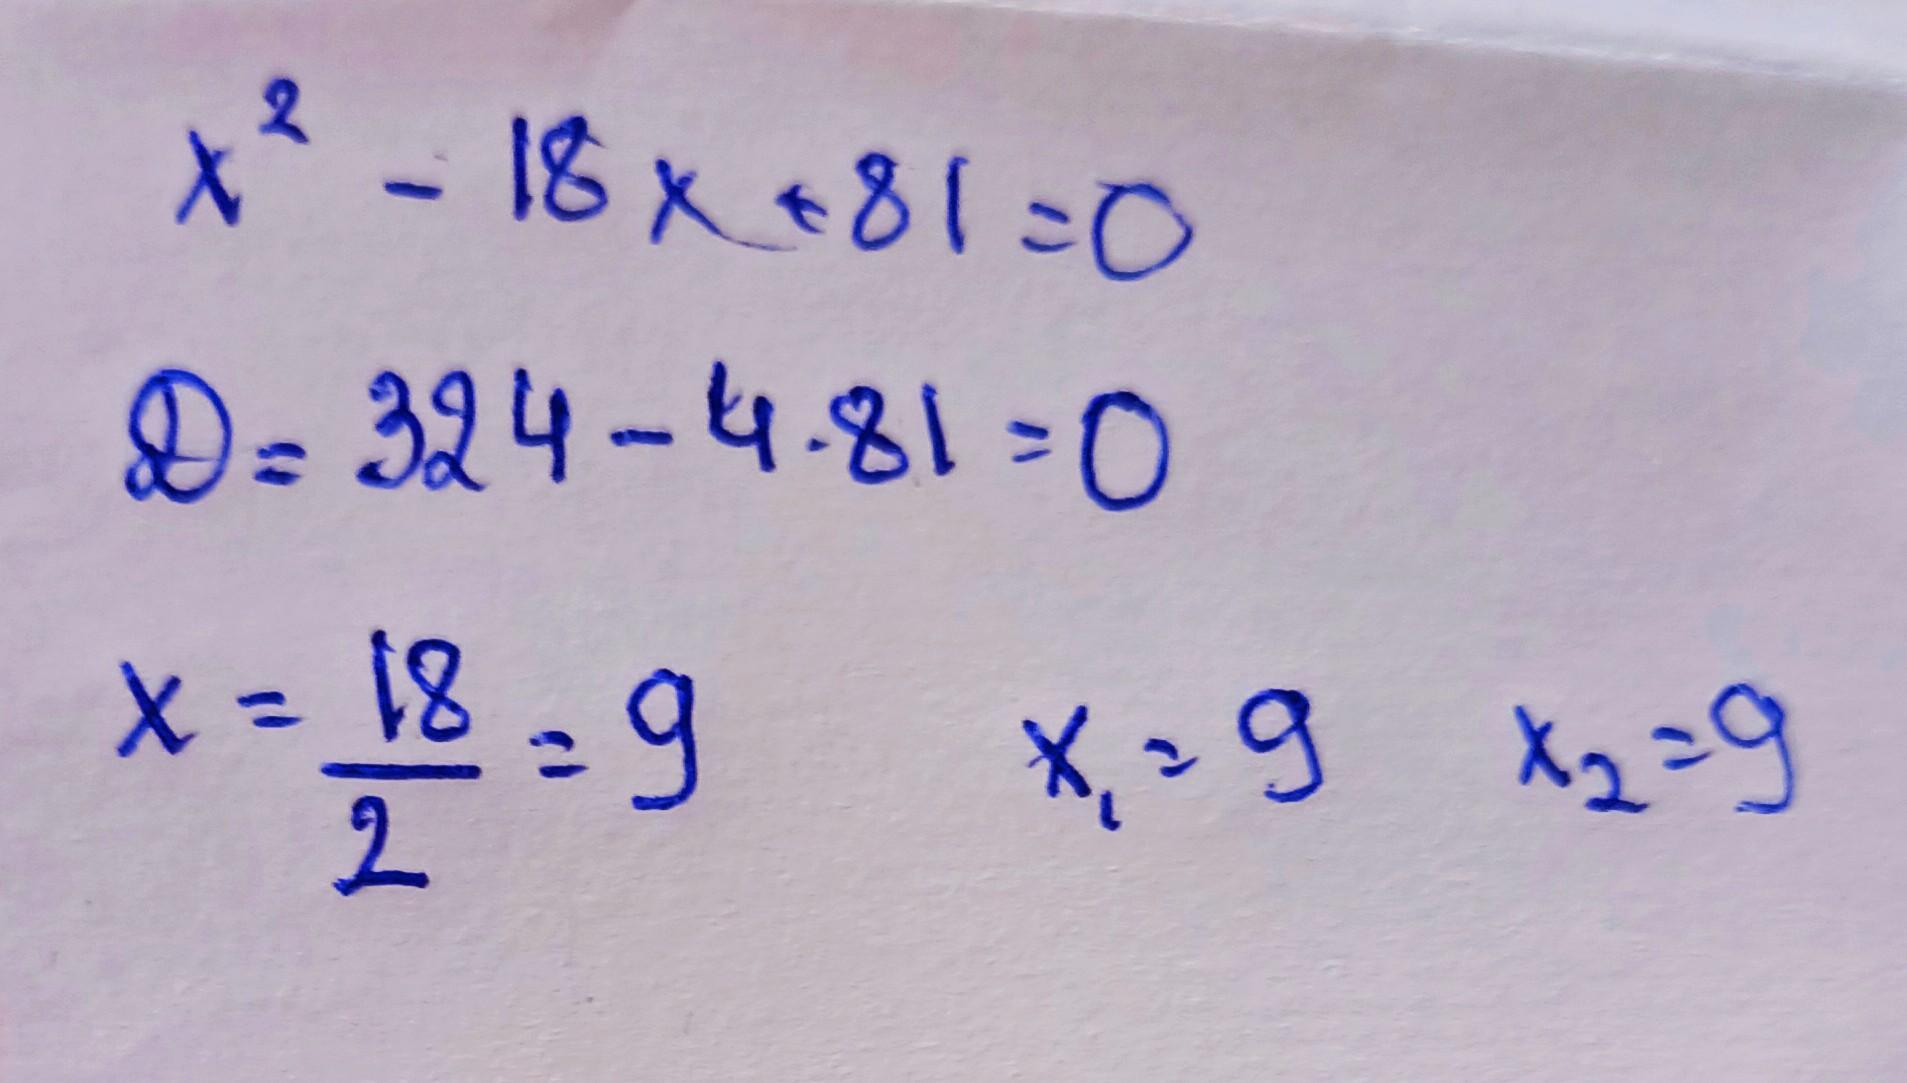 x² - 18x + 81 = 0
D = 324 - 4 · 81 = 0
x = 18/2 = 9 x₁ = 9 x₂ = 9